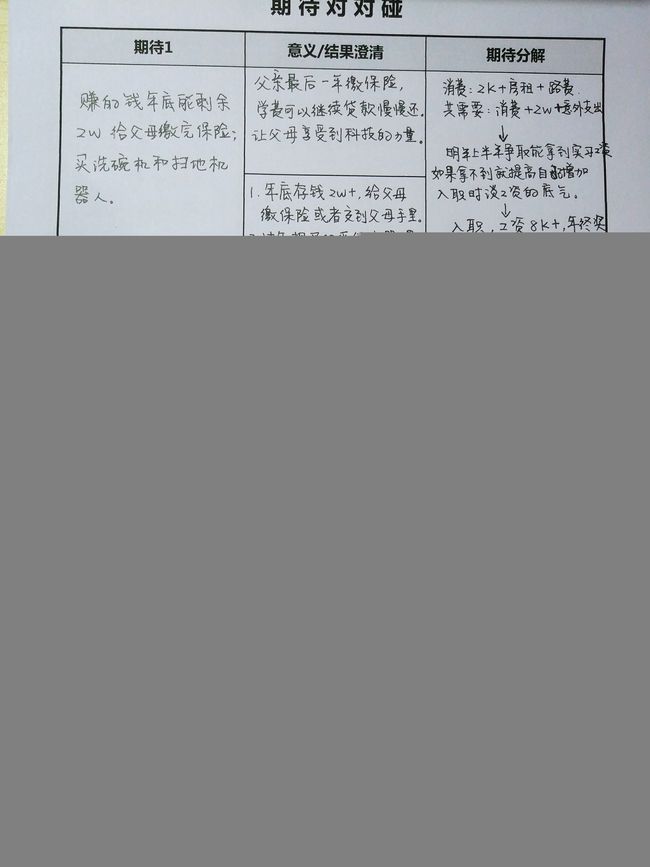 期待对对碰
期待1
意义/结果澄清
期待分解
赚的钱年底能剩余
2w 给父母缴完保险;
买洗碗机和扫地机
器人。
父亲最后一年缴保险,
学费可以继续贷款慢慢还.
让父母享受到科技的力量.
1. 年底存钱 2w+, 给父母
缴保险或者交到父母手里.
消费: 2K+房租+路费.
共需要: 消费+2w+意外支出
↓
明年上半年争取能拿到实习工资
如果拿不到就提高自己增加
入职时谈工资的底气.
↓
入职, 工资 8K+, 年终奖